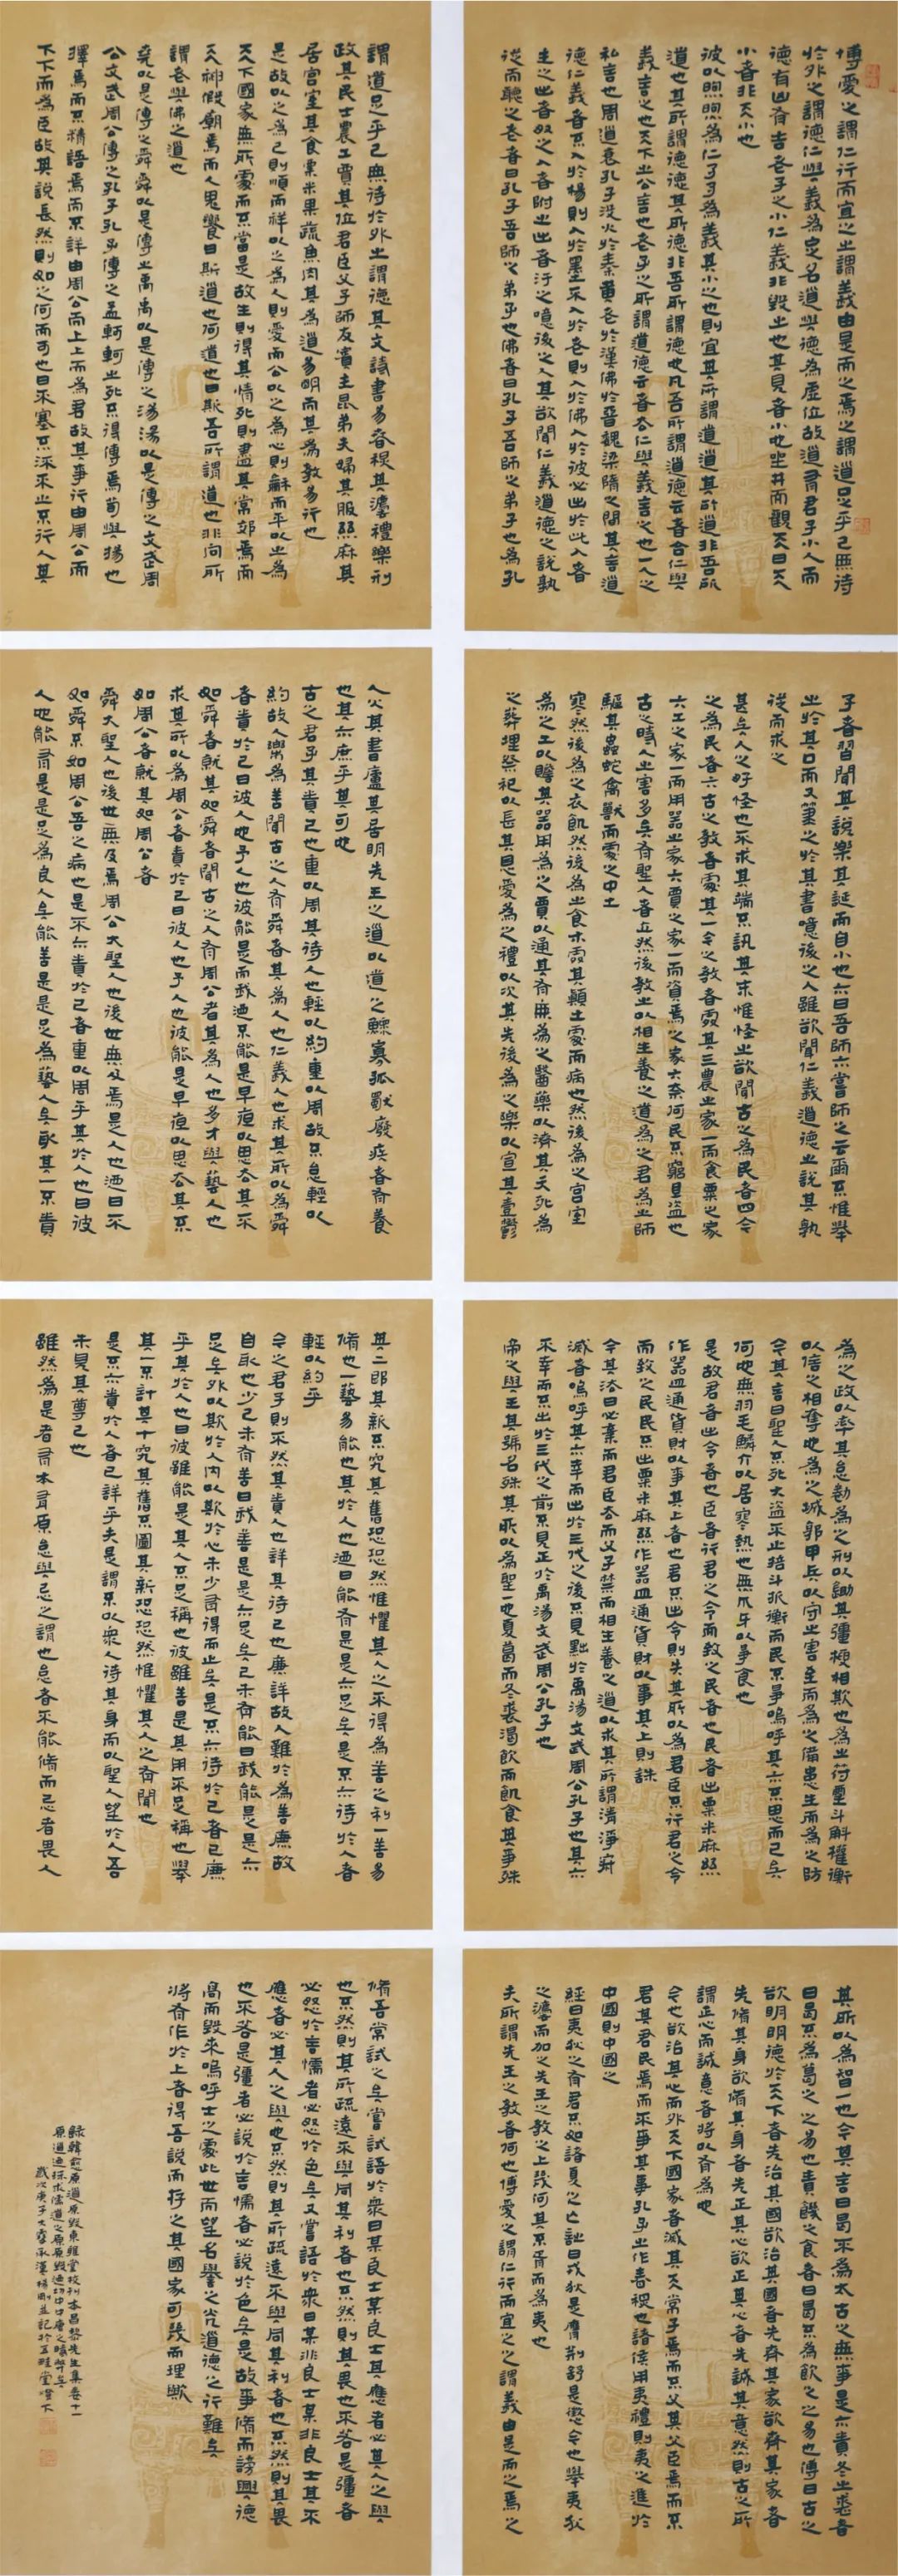 博愛之謂仁行而宜之之謂義由是而之焉之謂道足乎己無待
於外之謂德仁與義為定名道與德為虛位故道有君子小人而
德有凶有吉老子之小仁義非毀之也其見者小也坐井而觀天曰天
小者非天小也
彼以煦煦為仁孑孑為義其小之也則宜其所謂道道其所道非吾所
道也其所謂德德其所德非吾所謂德也凡吾所謂道德云者合仁與
義言之也天下之公言也老子之所謂道德云者去仁與義言之也一人之
私言也周道衰孔子沒火於秦黃老於漢佛於晉魏梁隋之間其言道
德仁義者不入於楊則入於墨不入於老則入於佛入於彼必出於此入者
主之出者奴之入者附之出者汙之噫後之人其欲聞仁義道德之說孰
從而聽之老者曰孔子吾師之弟子也佛者曰孔子吾師之弟子也為孔
子者習聞其說樂其誕而自小也亦曰吾師亦嘗師之云爾不惟舉
之於其口而又筆之於其書噫後之人雖欲聞仁義道德之說其孰
從而求之
甚矣人之好怪也不求其端不訊其末惟怪之欲聞古之為民者四今
之為民者六古之教者處其一今之教者處其三農之家一而食粟之家
六工之家一而用器之家六賈之家一而資焉之家六奈何民不窮且盜也
古之時人之害多矣有聖人者立然後教之以相生養之道為之君為之師
驅其蟲蛇禽獸而處之中土
寒然後為之衣飢然後為之食木處其顛土處而病也然後為之宮室
為之工以贍其器用為之賈以通其有無為之醫藥以濟其夭死為
之葬埋祭祀以長其恩愛為之禮以次其先後為之樂以宣其壹鬱
為之政以率其怠勌為之刑以鋤其彊梗相欺也為之符璽斗斛權衡
以信之相奪也為之城郭甲兵以守之害至而為之備患生而為之防
今其言曰聖人不死大盜不止掊斗折衡而民不爭嗚呼其亦不思而已矣
何也無羽毛鱗介以居寒熱也無爪牙以爭食也
是故君者出令者也臣者行君之令而致之民者也民者出粟米麻絲
作器皿通貨財以事其上者也君不出令則失其所以為君臣不行君之令
而致之民民不出粟米麻絲作器皿通貨財以事其上則誅
今其法曰必棄而君臣去而父子禁而相生養之道以求其所謂清淨寂
滅者嗚呼其亦幸而出於三代之後不見黜於禹湯文武周公孔子也其亦
不幸而不出於三代之前不見正於禹湯文武周公孔子也
帝之與王其號名殊其所以為聖一也夏葛而冬裘渴飲而飢食其事殊
其所以為智一也今其言曰曷不為太古之無事是亦責冬之裘者
曰曷不為葛之之易也責饑之食者曰曷不為飲之之易也傳曰古之
欲明明德於天下者先治其國欲治其國者先齊其家欲齊其家者
先脩其身欲脩其身者先正其心欲正其心者先誠其意然則古之所
謂正心而誠意者將以有為也
今也欲治其心而外天下國家者滅其天常子焉而不父其父臣焉而不
君其君民焉而不事其事孔子之作春秋也諸侯用夷禮則夷之進於
中國則中國之
經曰夷狄之有君不如諸夏之亡詩曰戎狄是膺荊舒是懲今也舉夷狄
之法而加之先王之教之上幾何其不胥而為夷也
夫所謂先王之教者何也博愛之謂仁行而宜之之謂義由是而之焉之
謂道足乎己無待於外之謂德其文詩書易春秋其法禮樂刑
政其民士農工賈其位君臣父子師友賓主昆弟夫婦其服絲麻其
居宮室其食粟米果蔬魚肉其為道易明而其為教易行也
是故以之為己則順而祥以之為人則愛而公以之為心則和而平以之為
天下國家無所處而不當是故生則得其情死則盡其常郊焉而
天神假廟焉而人鬼饗曰斯道也何道也曰斯吾所謂道也非向所
謂老與佛之道也
堯以是傳之舜舜以是傳之禹禹以是傳之湯湯以是傳之文武周
公文武周公傳之孔子孔子傳之孟軻軻之死不得傳焉荀與揚也
擇焉而不精語焉而不詳由周公而上上而為君故其事行由周公而
下下而為臣故其說長然則如之何而可也曰不塞不流不止不行人其
人火其書廬其居明先王之道以道之鰥寡孤獨廢疾者有養
也其亦庶乎其可也
古之君子其責己也重以周其待人也輕以約重以周故不怠輕以
約故人樂為善聞古之人有舜者其為人也仁義人也求其所以為舜
者責於己曰彼人也予人也彼能是而我乃不能是早夜以思去其不
如舜者就其如舜者聞古之人有周公者其為人也多才與藝人也
求其所以為周公者責於己曰彼人也予人也彼能是早夜以思去其不
如周公者就其如周公者
舜大聖人也後世無及焉周公大聖人也後世無及焉是人也迺曰不
如舜不如周公吾之病也是不亦責於己者重以周乎其於人也曰彼
人也能有是是足為良人矣能善是是足為藝人矣取其一不責
其二即其新不究其舊恐恐然惟懼其人之不得為善之利一善易
脩也一藝易能也其於人也迺曰能有是是亦足矣是不亦待於人者
輕以約乎
今之君子則不然其責人也詳其待己也廉詳故人難於為善廉故
自取也少己未有善曰我善是是亦足矣己未有能曰我能是是亦
足矣外以欺於人內以欺於心未少有得而止矣是不亦待於己者已廉
乎其於人也曰彼雖能是其人不足稱也彼雖善是其用不足稱也舉
其一不計其十究其舊不圖其新恐恐然惟懼其人之有聞也
是不亦責於人者已詳乎夫是謂不以眾人待其身而以聖人望於人吾
未見其尊己也
雖然為是者有本有原怠與忌之謂也怠者不能脩而忌者畏人
脩吾常試之矣嘗試語於眾曰某良士某良士其應者必其人之與
也不然則其所疏遠不與同其利者也不然則其畏也不若是彊者
必怒於言懦者必怒於色矣又嘗語於眾曰某非良士某非良士其不
應者必其人之與也不然則其所疏遠不與同其利者也不然則其畏
也不若是彊者必說於言懦者必說於色矣是故事脩而謗興德
高而毀來嗚呼士之處此世而望名譽之光道德之行難矣
將有作於上者得吾說而存之其國家可幾而理歟
錄韓愈原道原毀東雅堂校刊本昌黎先生集卷十一